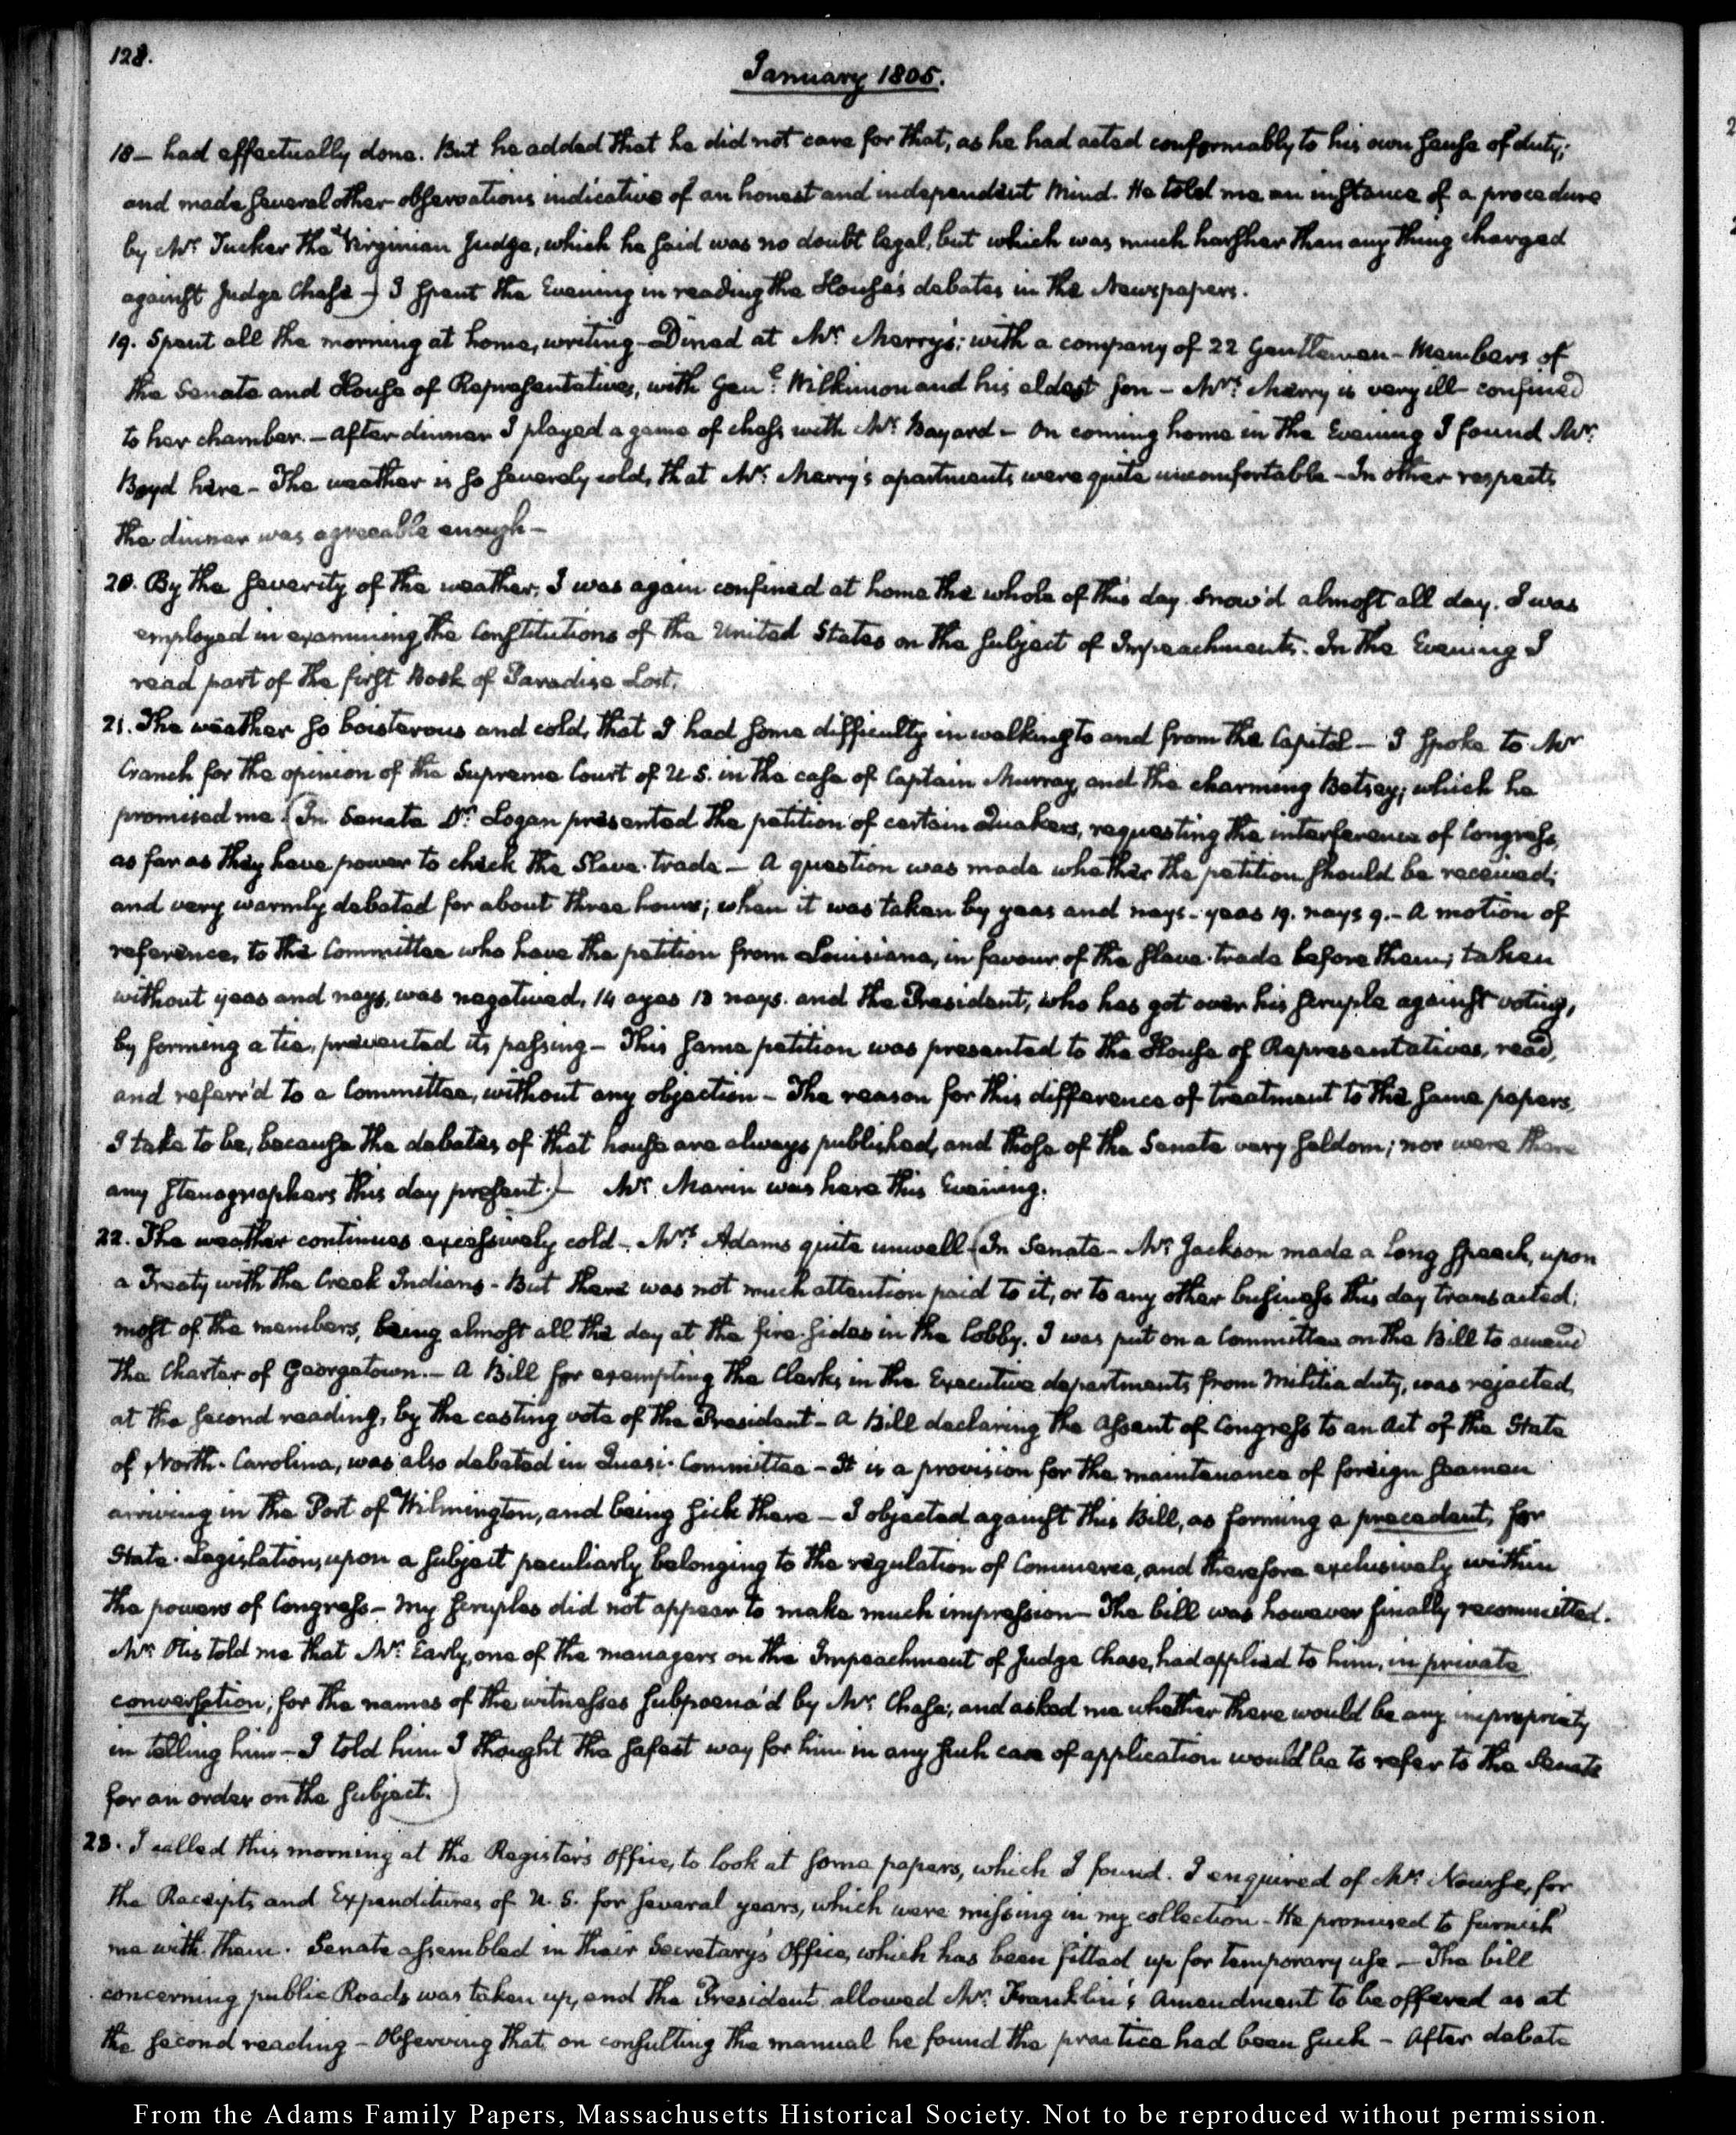 128.
January 1805.
18— had effectually done. But he added that he did not care for that, as he had acted conformably to his own sense of duty;
and made several other observations indicative of an honest and independent mind. He told me an instance of a procedure
by Mr. Tucker the Virginian Judge, which he said was no doubt legal, but which was much harsher than any thing charged
against Judge Chase —) I spent the Evening in reading the House's debates in the Newspapers.
19. Spent all the morning at home, writing — Dined at Mr. Merry's; with a company of 22 Gentlemen — Members of
the Senate and House of Representatives, with Genl. Wilkinson and his eldest son — Mrs. Merry is very ill — confined
to her chamber. — After dinner I played a game of chess with Mr. Bayard — On coming home in the Evening I found Mr.
Boyd here — The weather is so severely cold, that Mr. Merry's apartments were quite uncomfortable — In other respects
the dinner was agreeable enough —
20. By the severity of the weather, I was again confined at home the whole of this day. Snow'd almost all day. I was
employed in examining the Constitutions of the United States on the subject of Impeachments. In the Evening I
read part of the first Book of Paradise Lost.
21. The weather so boisterous and cold, that I had some difficulty in walking to and from the Capitol — I spoke to Mr
Cranch for the opinion of the Supreme Court of U S. in the case of Captain Murray, and the charming Betsey; which he
promised me. (In Senate Dr. Logan presented the petition of certain Quakers, requesting the interference of Congress,
as far as they have power to check the Slave-trade — A question was made whether the petition should be received;
and very warmly debated for about three hours; when it was taken by yeas and nays — yeas 19. nays 9. — A motion of
reference, to the Committee who have the petition from Louisiana, in favour of the slave-trade before them; taken
without yeas and nays, was negatived, 14 ayes 13 nays. and the President, who has got over his scruple against voting,
by forming a tie, prevented its passing — This same petition was presented to the House of Representatives, read,
and referr'd to a Committee, without any objection — The reason for this difference of treatment to the same papers,
I take to be, because the debates of that house are always published, and those of the Senate very seldom; nor were there
any stenographers this day present.) — Mr. Marin was here this Evening.
22. The weather continues excessively cold — Mrs. Adams quite unwell. (In Senate — Mr. Jackson made a long speech, upon
a Treaty with the Creek Indians — But there was not much attention paid to it, or to any other business this day transacted;
most of the members, being almost all the day at the fire-sides in the lobby. I was put on a Committee on the Bill to amend
the Charter of Georgetown. — A Bill for exempting the Clerks in the Executive departments from Militia duty, was rejected,
at the second reading, by the casting vote of the President — A Bill declaring the Assent of Congress to an Act of the State
of North-Carolina, was also debated in Quasi-Committee — It is a provision for the maintenance of foreign seamen
arriving in the Port of Wilmington, and being sick there — I objected against this Bill, as forming a precedent, for
State-Legislation, upon a subject peculiarly belonging to the regulation of Commerce, and therefore exclusively within
the powers of Congress — My scruples did not appear to make much impression — The bill was however finally recommitted.
Mr. Otis told me that Mr. Early, one of the managers on the Impeachment of Judge Chase, had applied to him, in private
conversation, for the names of the witnesses subpoena'd by Mr. Chase; and asked me whether there would be any impropriety
in telling him — I told him I thought the safest way for him in any such case of application would be to refer to the Senate
for an order on the subject.)
23. I called this morning at the Register's Office, to look at some papers, which I found. I enquired of Mr. Nourse, for
the Receipts and Expenditures of U. S. for several years, which were missing in my collection — He promised to furnish
me with them. Senate assembled in their Secretary's Office, which has been fitted up for temporary use — The bill
concerning public Roads was taken up, and the President allowed Mr. Franklin's Amendment to be offered as at
the second reading — Observing that on consulting the manual he found the practice had been such — After debate
From the Adams Family Papers, Massachusetts Historical Society. Not to be reproduced without permission.